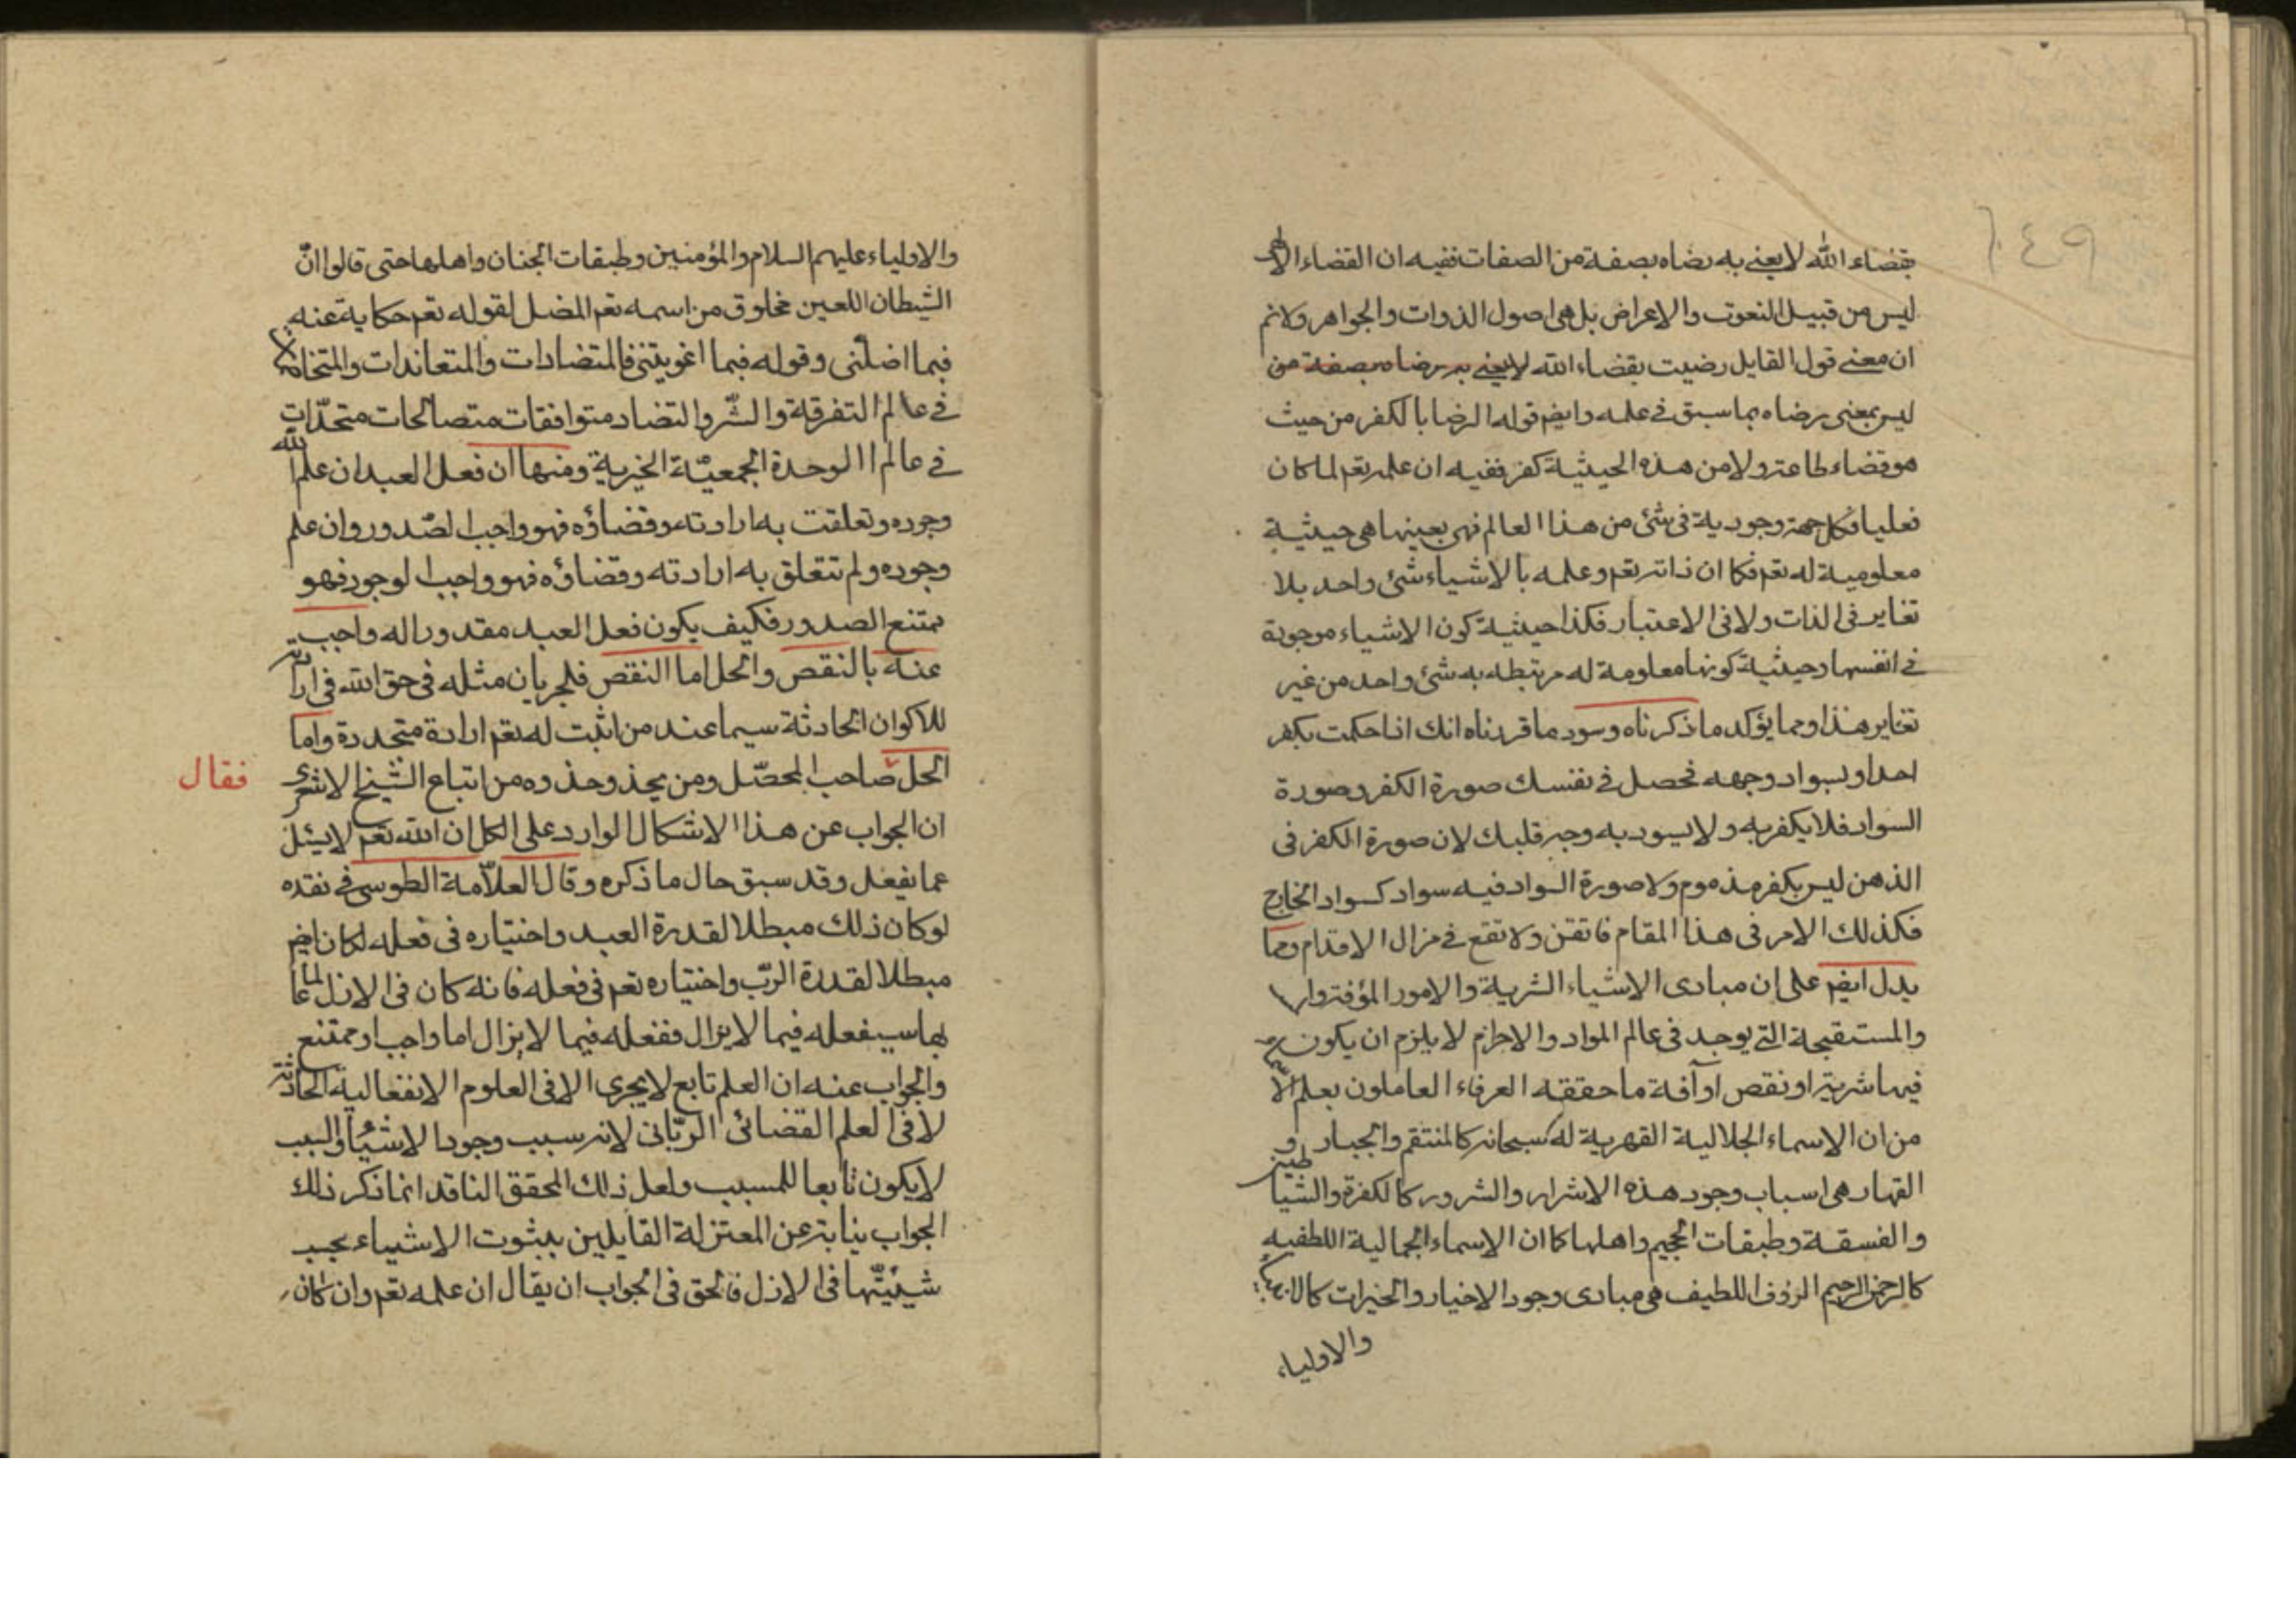 ٦٤٩
بقضاء الله لا يعنى به رضاه بصفة من الصفات ففيه ان القضاء الالهى
ليس من قبيل النعوت والاعراض بل هى اصول الذوات والجواهر ولانم
ان معنى قول القايل رضيت بقضاء الله لا يعنى به رضاه بصفة من
ليس بمعنى رضاه بما سبق فى علمه وايضم قوله الرضا بالكفر من حيث
هو قضاء طاعته ولا من هذه الحيثية كفر ففيه ان علمه تعم لما كان
فعليا فكل جهة وجودية فى شئ من هذا العالم فهى بعينها هى حيثية
معلومية له تعم فكا ان ذاته تعم وعلمه بالاشياء شئ واحد بلا
تغاير فى الذات ولا فى الاعتبار فكذا حيثية كون الاشياء موجودة
فى انفسها وحيثية كونها معلومة له مرتبطه به شئ واحد من غير
تغاير هذا ومما يؤكد ما ذكرناه وسود ما قررناه انك اذا حكمت بكفر
احد او بسواد وجهه فحصل فى نفسك صورة الكفر وصورة
السواد فلا يكفر به ولا يسود به وجه قلبك لان صورة الكفر فى
الذهن ليس بكفر مذموم ولا صورة السواد فيه سواد كسواد الخارج
فكذلك الامر فى هذا المقام فاتقن ولا تقع فى مزال الاقدام ومما
يدل ايضم على ان مبادى الاشياء الشرية والامور المؤفتوارا
والمستقبحة التى يوجد فى عالم المواد والاجرام لا يلزم ان يكون
فيها شرية او نقص او آفة ما حققه العرفاء العاملون بعلم الاسماء
من ان الاسماء الجلالية القهرية له سبحانه كالمنتقم والجبار و
القهار هى اسباب وجود هذه الاشرار والشرور كالكفرة والشياطين
والفسقة وطبقات الجحيم واهلها كما ان الاسماء الجمالية اللطفيه
كالرحمن الرحيم الرؤف اللطيف هى مبادى وجود الاخيار والخيرات كالانبياء
والاولياء
والاولياء عليهم السلام والمؤمنين وطبقات الجنان واهلها حتى قالوا انّ
الشيطان اللعين مخلوق من اسمه تعم المضل لقوله تعم حكاية عنه
فبما اضلّنى وقوله فبما اغويتنى فالمتضادات والمتعاندات والمتخاصمات
فى عالم التفرقة والشّر والتضاد متوافقات متصالحات متحدّات
فى عالم الوحدة الجمعيّة الخيرية ومنها ان فعل العبد ان علم الله
وجوده وتعلقت به ارادته وقضاؤه فهو واجب الصّدور وان علم
وجوده ولم تتعلق به ارادته وقضاؤه فهو واجب الوجود فهو
ممتنع الصدور فكيف يكون فعل العبد مقدورا له واجيب
عنه بالنقص والحل اما النقص فلجريان مثله فى حق الله فى ارادته
للاكوان الحادثة سيما عند من اثبت له تعم ارادة متجددة واما
الحل صاحب المحصّل ومن يحذو حذوه من اتباع الشيخ الاشعرى
فقال
ان الجواب عن هذا الاشكال الوارد على الكل ان الله تعم لا يسئل
عما يفعل وقد سبق حال ما ذكره وقال العلاّمة الطوسى فى نقده
لو كان ذلك مبطلا لقدرة العبد واختياره فى فعله لكان ايضم
مبطلا لقدرة الرّب واختياره تعم فى فعله فانه كان فى الازل عالما
بما سيفعله فيما لا يزال ففعله فيما لا يزال اما واجب او ممتنع
والجواب عنه ان العلم تابع لا يجرى الا فى العلوم الانفعالية الحادثة
لا فى العلم القضائى الربّانى لانه سبب وجود الاشياء والسبب
لا يكون تابعا للمسبب ولعل ذلك المحقق الناقد انما ذكر ذلك
الجواب نيابة عن المعتزلة القايلين بثبوت الاشياء بحسب
شيئيّتها فى الازل فالحق فى الجواب ان يقال ان علمه تعم وان كان